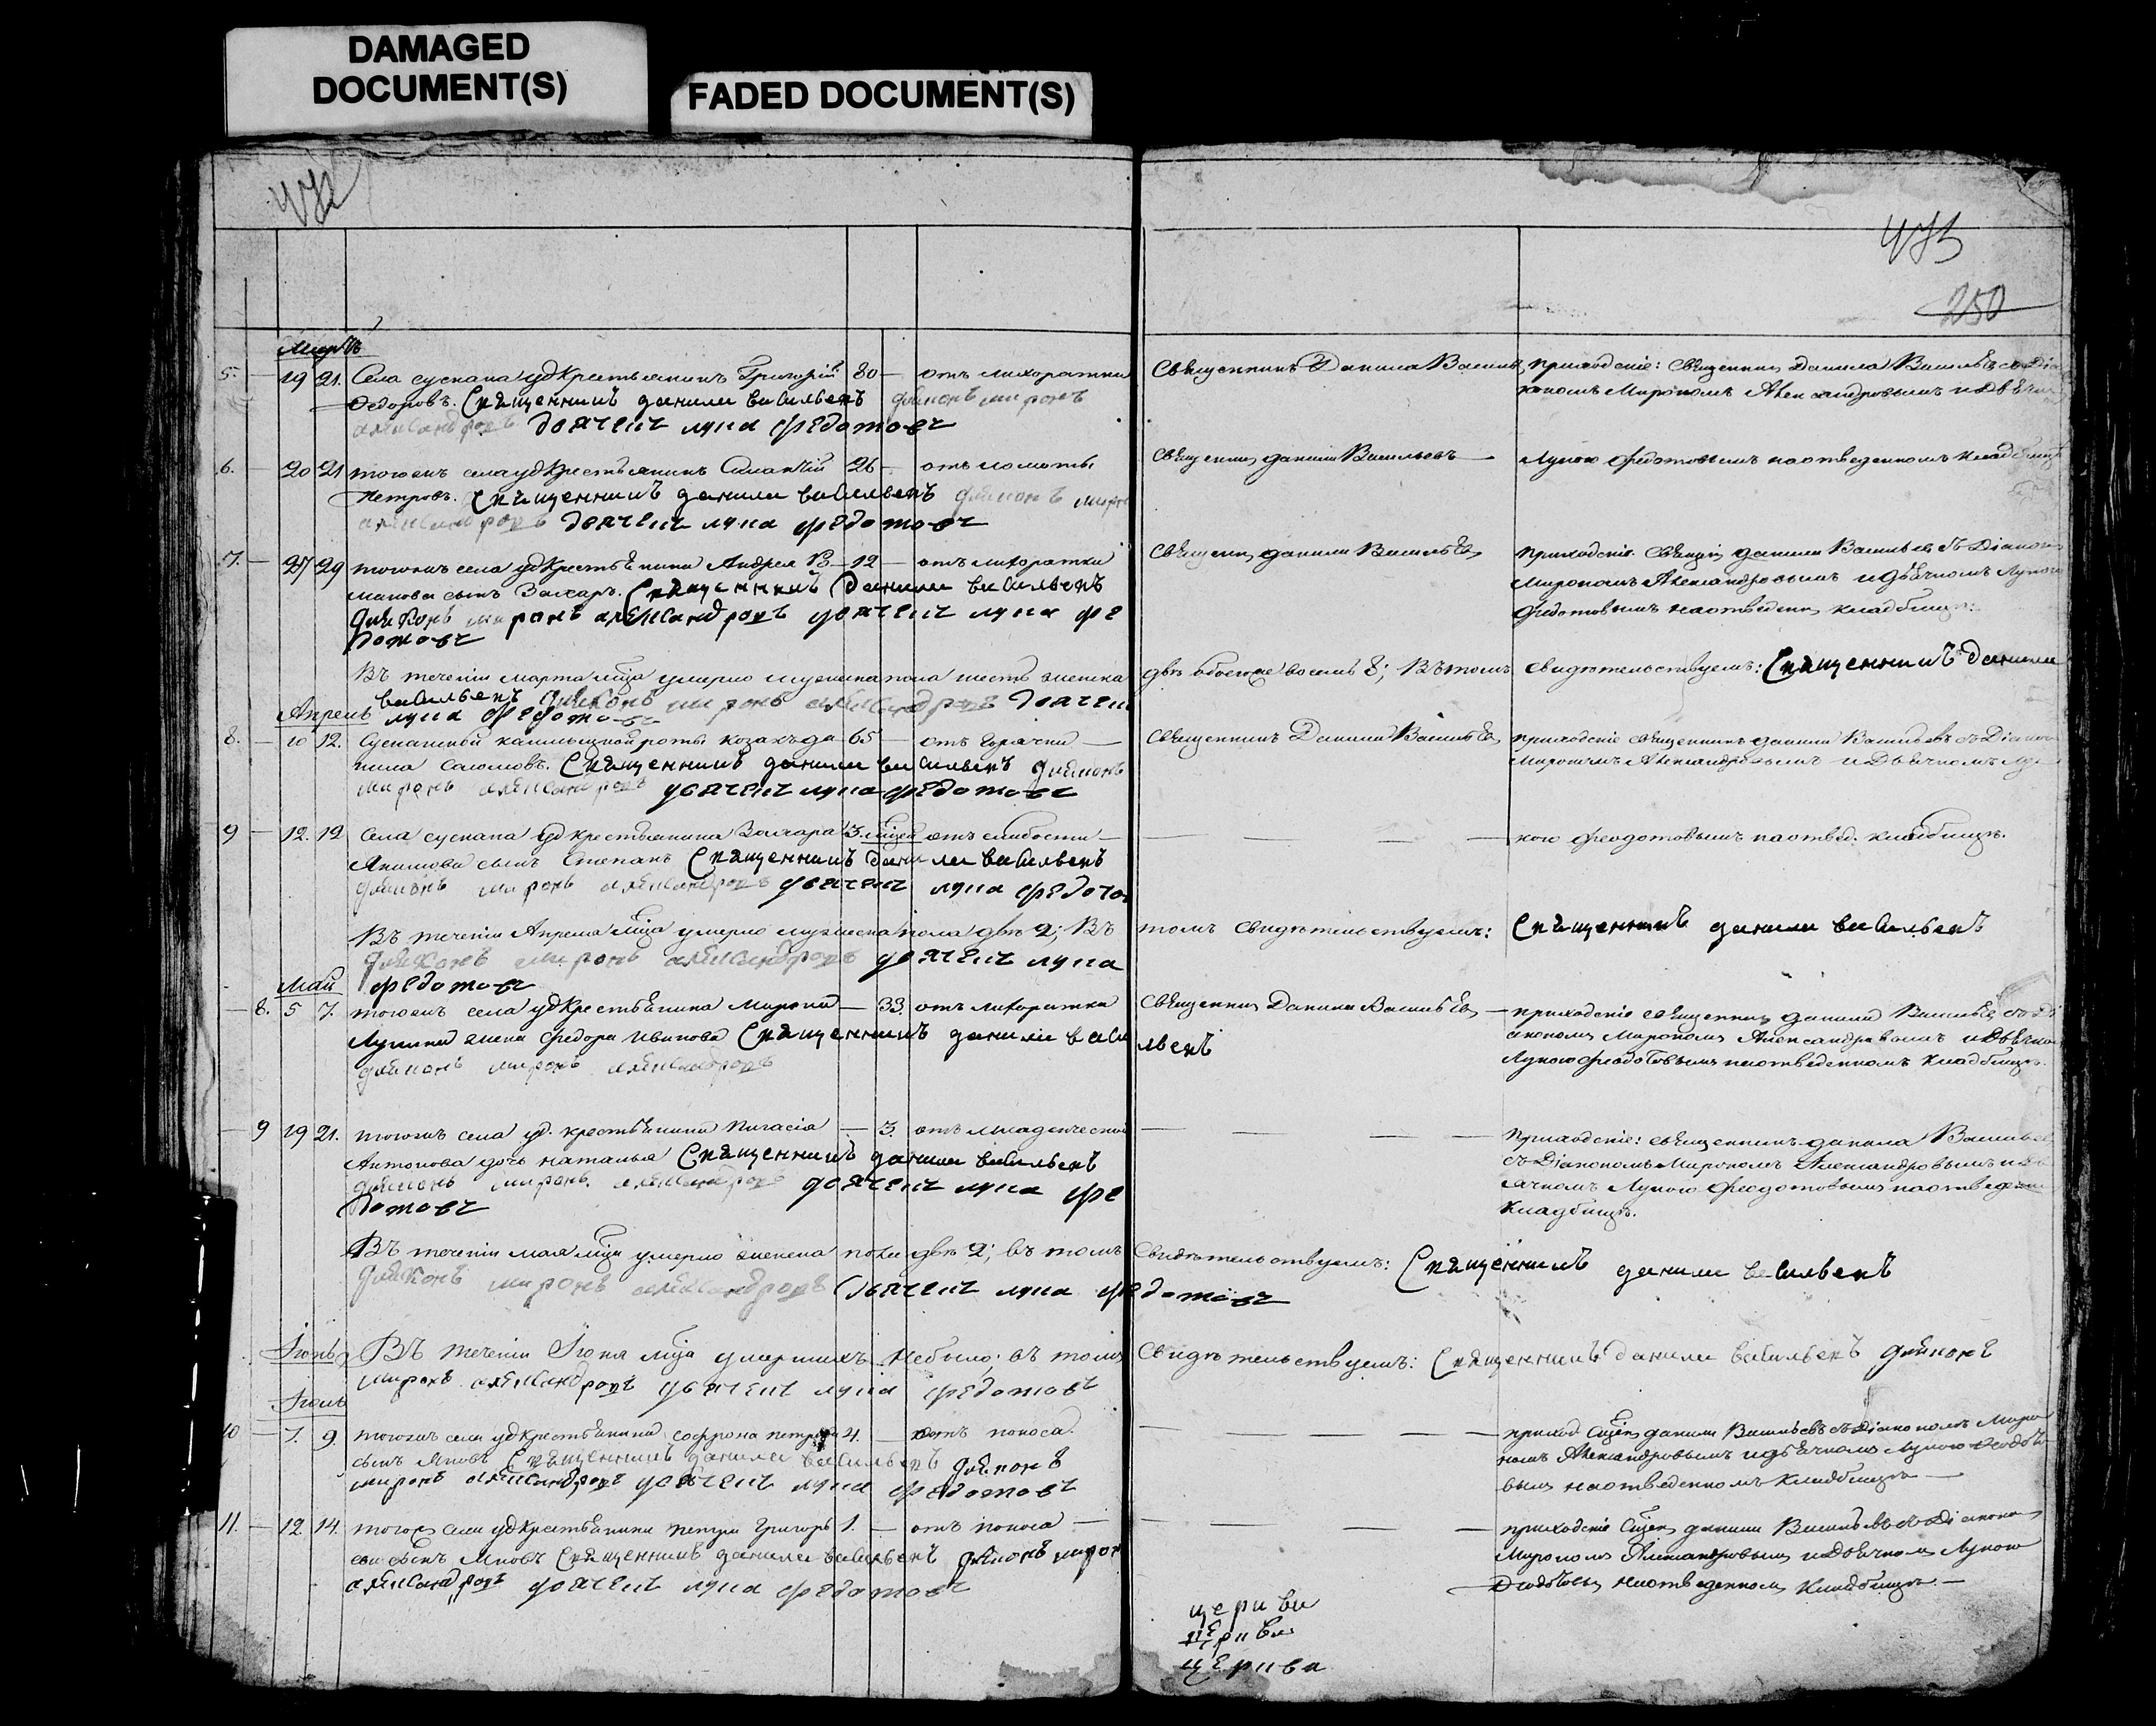 DAMAGED
DOCUMENT(S)
FADED DOCUMENT(S)
472
473
250
Мартъ
5. 19 21. Села сускана уд крестьянинъ Григорій 80 — отъ лихоратки
Федоровъ. Священникъ данила васильевъ диаконъ миронъ
александровъ дьячекъ лука федотовъ
Священникъ Данила Васильевъ
приходскіе: Священникъ Данила Васильевъ съ Діа
кономъ Мирономъ Александровымъ и Дьячко
6. 20 21 тогожъ села уд крестьянинъ 26 — отъ ломоты
Петровъ. Священникъ данила васильевъ диаконъ миронъ
александровъ дьячекъ лука федотовъ
Священникъ данила Васильевъ —
Лукою Федотовымъ на отведенномъ кладбищѣ
7. — 27 29 тогожъ села уд крестьянина Андрея 12 — отъ лихоратки
сынъ Захаръ. Священникъ данила васильевъ
диаконъ миронъ александровъ дьячекъ лука фе
дотовъ
Священникъ данила Васильевъ
приходскіе. Священникъ данила Васильевъ съ Діакономъ
Мирономъ Александровымъ и дьячкомъ Лукою
Федотовымъ на отведенномъ кладбищѣ:
Въ теченіи марта мца умерло мужеска пола шесть женска
двѣ обоего восемь 8; Въ томъ свидѣтельствуемъ: Священникъ данила
васильевъ диаконъ миронъ александровъ дьячекъ
лука федотовъ
Апрель
8. — 10 12. Сусканской роты козакъ да 65 — отъ горячки —
нила Священникъ данила васильевъ диаконъ
миронъ александровъ дьячекъ лука федотовъ
Священникъ Данила Васильевъ
приходскіе священникъ данила Васильевъ съ Діакономъ
Мирономъ Александровымъ и Дьячкомъ Лу
9 — 12. 12 Села сускана уд крестьянина Захара 3. мцей отъ слабости —
Акимова сынъ Степанъ Священникъ данила васильевъ
диаконъ миронъ александровъ дьячекъ лука федотов
кою Феодотовымъ на отвед. кладбищѣ.
Въ теченіи Апреля мца умерло мужеска пола двѣ 2; Въ
томъ свидѣтельствуемъ: Священникъ данила васильевъ
диаконъ миронъ александровъ дьячекъ лука
федотовъ
Май
— 8. 5 7. тогожъ села уд крестьянина — 33. отъ лихоратки
Лукина жена Федора Иванова Священникъ данила васи
львевъ
диаконъ миронъ александровъ
Священникъ Данила Васильевъ —
приходскіе священникъ данила Васильевъ съ Ді
акономъ Мирономъ Александровымъ и Дьячкомъ
Лукою Феодотовымъ на отведенномъ кладбищѣ.
— 9 19 21. тогожъ села уд. крестьянина — 3. отъ младенческой
Антонова дочь наталья Священникъ данила васильевъ
диаконъ миронъ александровъ дьячекъ лука фе
дотовъ
приходскіе: священникъ данила Васильевъ
съ Діакономъ Мирономъ Александровымъ и Дь
ячкомъ Лукою Феодотовымъ на отведенн
кладбищѣ.
Въ теченіи мая мца умерло женска пола двѣ 2; въ томъ
свидѣтельствуемъ: Священникъ данила васильевъ
диаконъ миронъ александровъ дьячекъ лука федотовъ
Іюнь
Въ теченіи Іюня мца умершихъ небыло; въ томъ
свидѣтельствуемъ: Священникъ данила васильевъ диаконъ
миронъ александровъ дьячекъ лука федотовъ
Іюль
10 — 7. 9. тогожъ села уд крестьянина софрона петрова 4. — отъ поноса.
сынъ Яковъ Священникъ данила васильевъ диаконъ
миронъ александровъ дьячекъ лука федотовъ
приход Данила Васильевъ съ Діакономъ Миро
номъ Александровымъ и дьячкомъ Лукою Феодото
вымъ на отведенномъ кладбищѣ —
11. — 12. 14. тогожъ села уд крестьянина петра Григорь 1. — отъ поноса —
ева сынъ Яковъ Священникъ данила васильевъ диаконъ мирон
александровъ дьячекъ лука федотовъ
приходскіе данила Васильевъ съ Діакономъ
Мирономъ Александровымъ и Дьячкомъ Лукою
на отведенномъ кладбищѣ. —
церкви
церкви
церкви